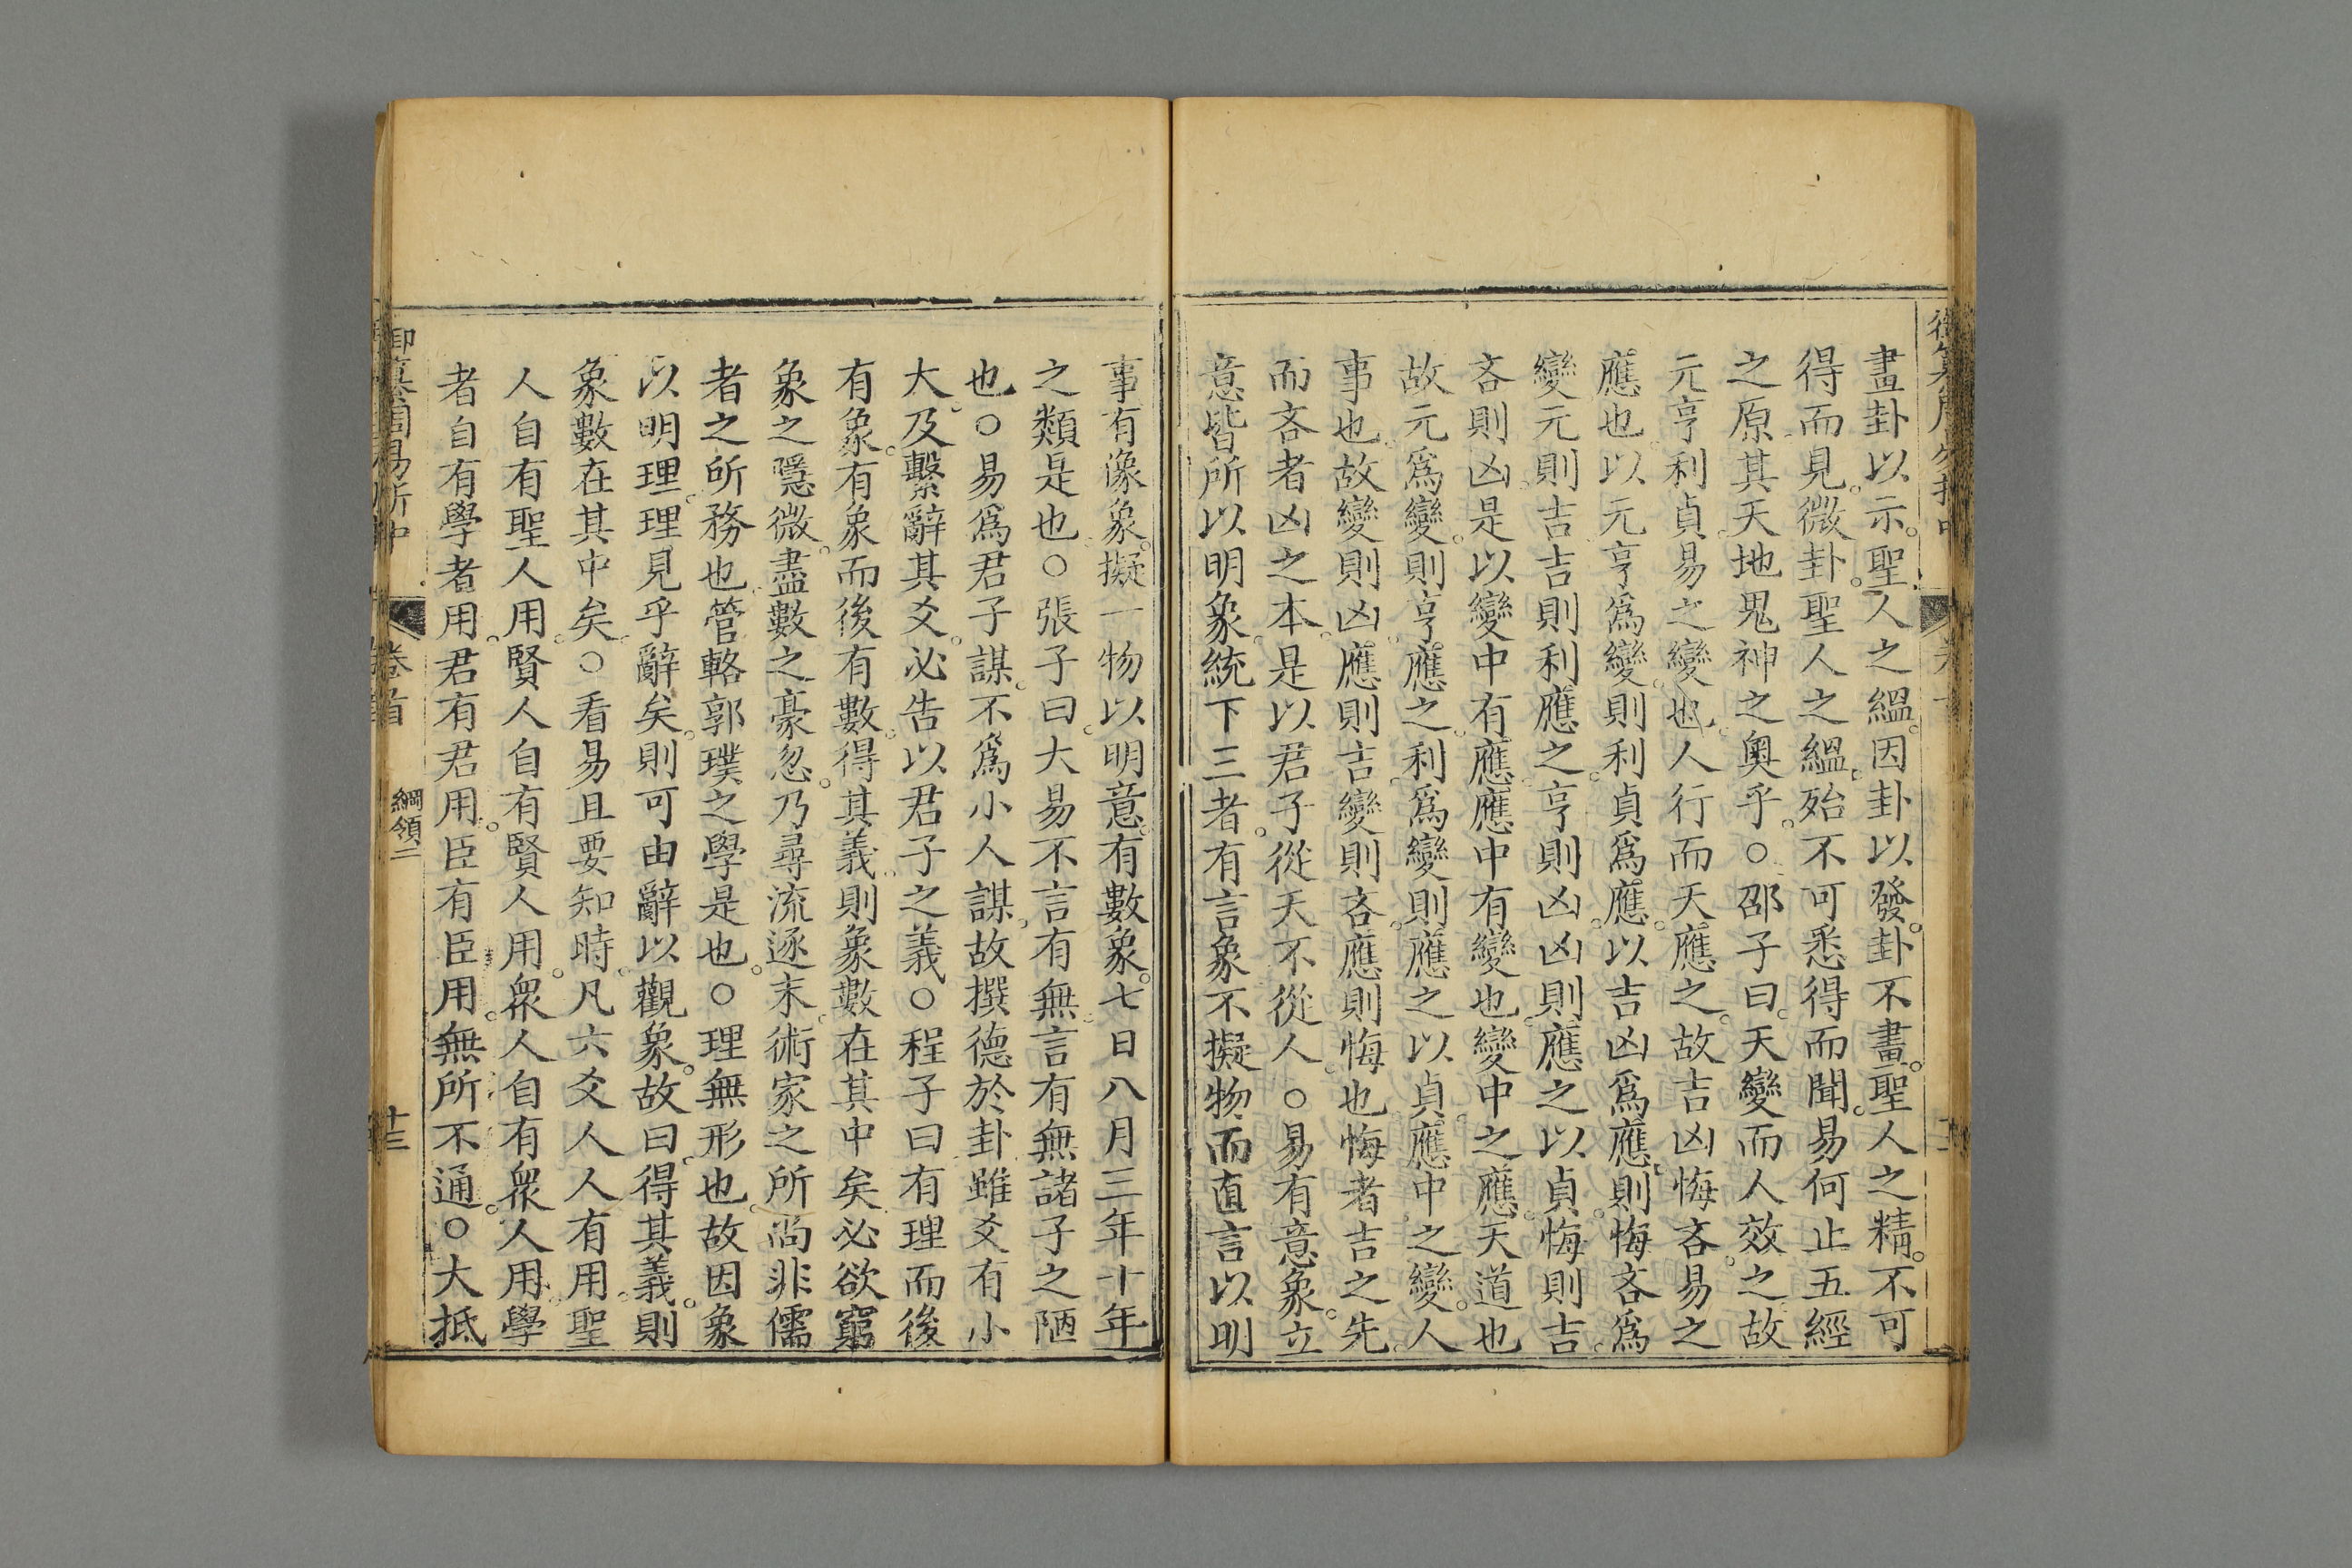 畫卦以示。聖人之縕。因卦以發。卦不畫。聖人之精。不可
得而見。微卦。聖人之縕。殆不可悉得而聞。易何止五經
之原。其天地鬼神之奧乎。○邵子曰。天變而人效之故
元亨利貞。易之變也。人行而天應之。故吉凶悔吝。易之
應也。以元亨爲變。則利貞爲應。以吉凶爲應。則悔吝爲
變。元則吉。吉則利應之。亨則凶。凶則應之以貞。悔則吉。
吝則凶。是以變中有應。應中有變也。變中之應。天道也
故元爲變。則亨應之。利爲變。則應之以貞。應中之變。人
事也。故變則凶。應則吉。變則吝。應則悔也。悔者吉之先。
而吝者凶之本。是以君子從天不從人。○易有意象。立
意皆所以明象。統下三者。有言象不擬物而直言以明
事有像象。擬一物以明意。有數象。七日八月三年十年
之類是也。○張子曰。大易不言有無。言有無諸子之陋
也。○易爲君子謀。不爲小人謀。故撰德於卦。雖爻有小
大。及繫辭其爻。必告以君子之義。○程子曰有理而後
有象。有象而後有數。得其義。則象數在其中矣。必欲窮
象之隱微。盡數之豪忽。乃尋流逐末。術家之所尚。非儒
者之所務也。管輅郭璞之學是也。○理無形也。故因象
以明理。理見乎辭矣。則可由辭以觀象。故曰。得其義。則
象數在其中矣。○看易且要知時。凡六爻人人有用。聖
人自有聖人用。賢人自有賢人用。衆人自有衆人用。學
者自有學者用。君有君用。臣有臣用。無所不通。○大抵
卷首 綱領二 十三